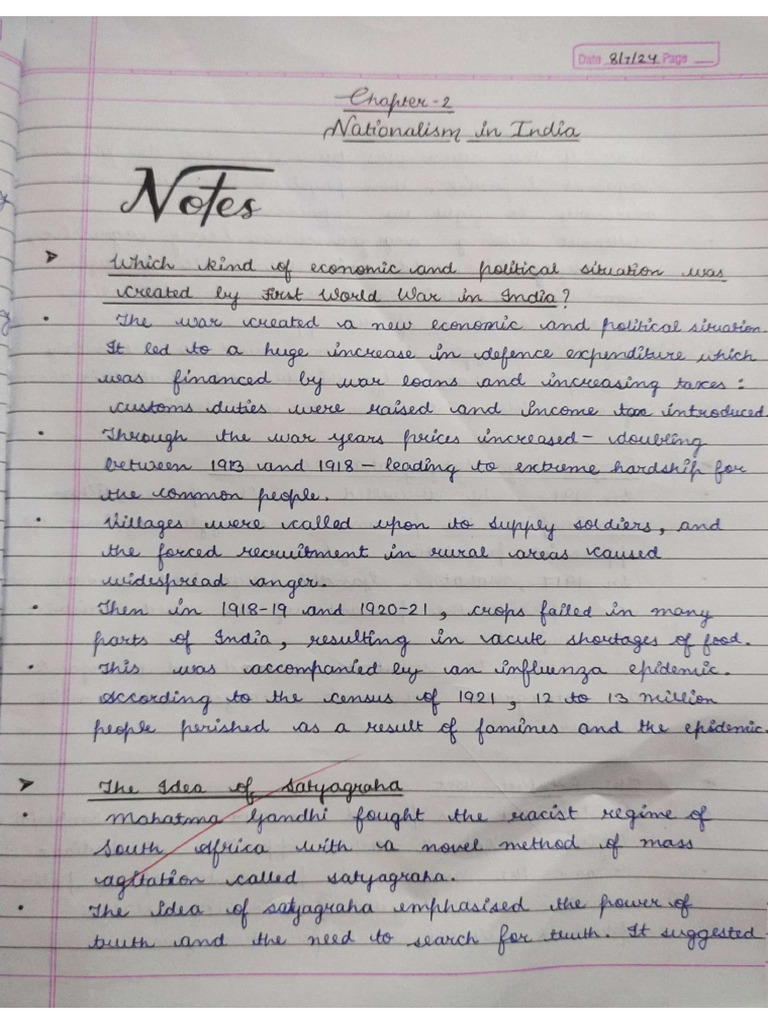 Date 8/7/24 Page
Chapter-2
Nationalism in India
Notes
Which kind of economic and political situation was
created by First World War in India?
• The war created a new economic and political situation.
It led to a huge increase in defence expenditure which
was financed by war loans and increasing taxes:
customs duties were raised and income tax introduced.
• Through the war years prices increased - doubling
between 1913 and 1918 - leading to extreme hardship for
the common people.
• Villages were called upon to supply soldiers, and
the forced recruitment in rural areas caused
widespread anger.
• Then in 1918-19 and 1920-21, crops failed in many
parts of India, resulting in acute shortages of food.
• This was accompanied by an influenza epidemic.
According to the census of 1921, 12 to 13 million
people perished as a result of famines and the epidemic.
The Idea of Satyagraha
• Mahatma Gandhi fought the racist regime of
South Africa with a novel method of mass
agitation called satyagraha.
• The idea of satyagraha emphasised the power of
truth and the need to search for truth. It suggested